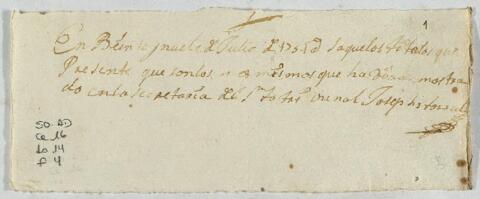 1
En Beinte jnuebe de Julio de saque los titulos que
Presente que son los mesmos que ha mostra
do en la secretaria del Sto Tribunal Joseph
50. AD
Ce 16
Do 14
f 4